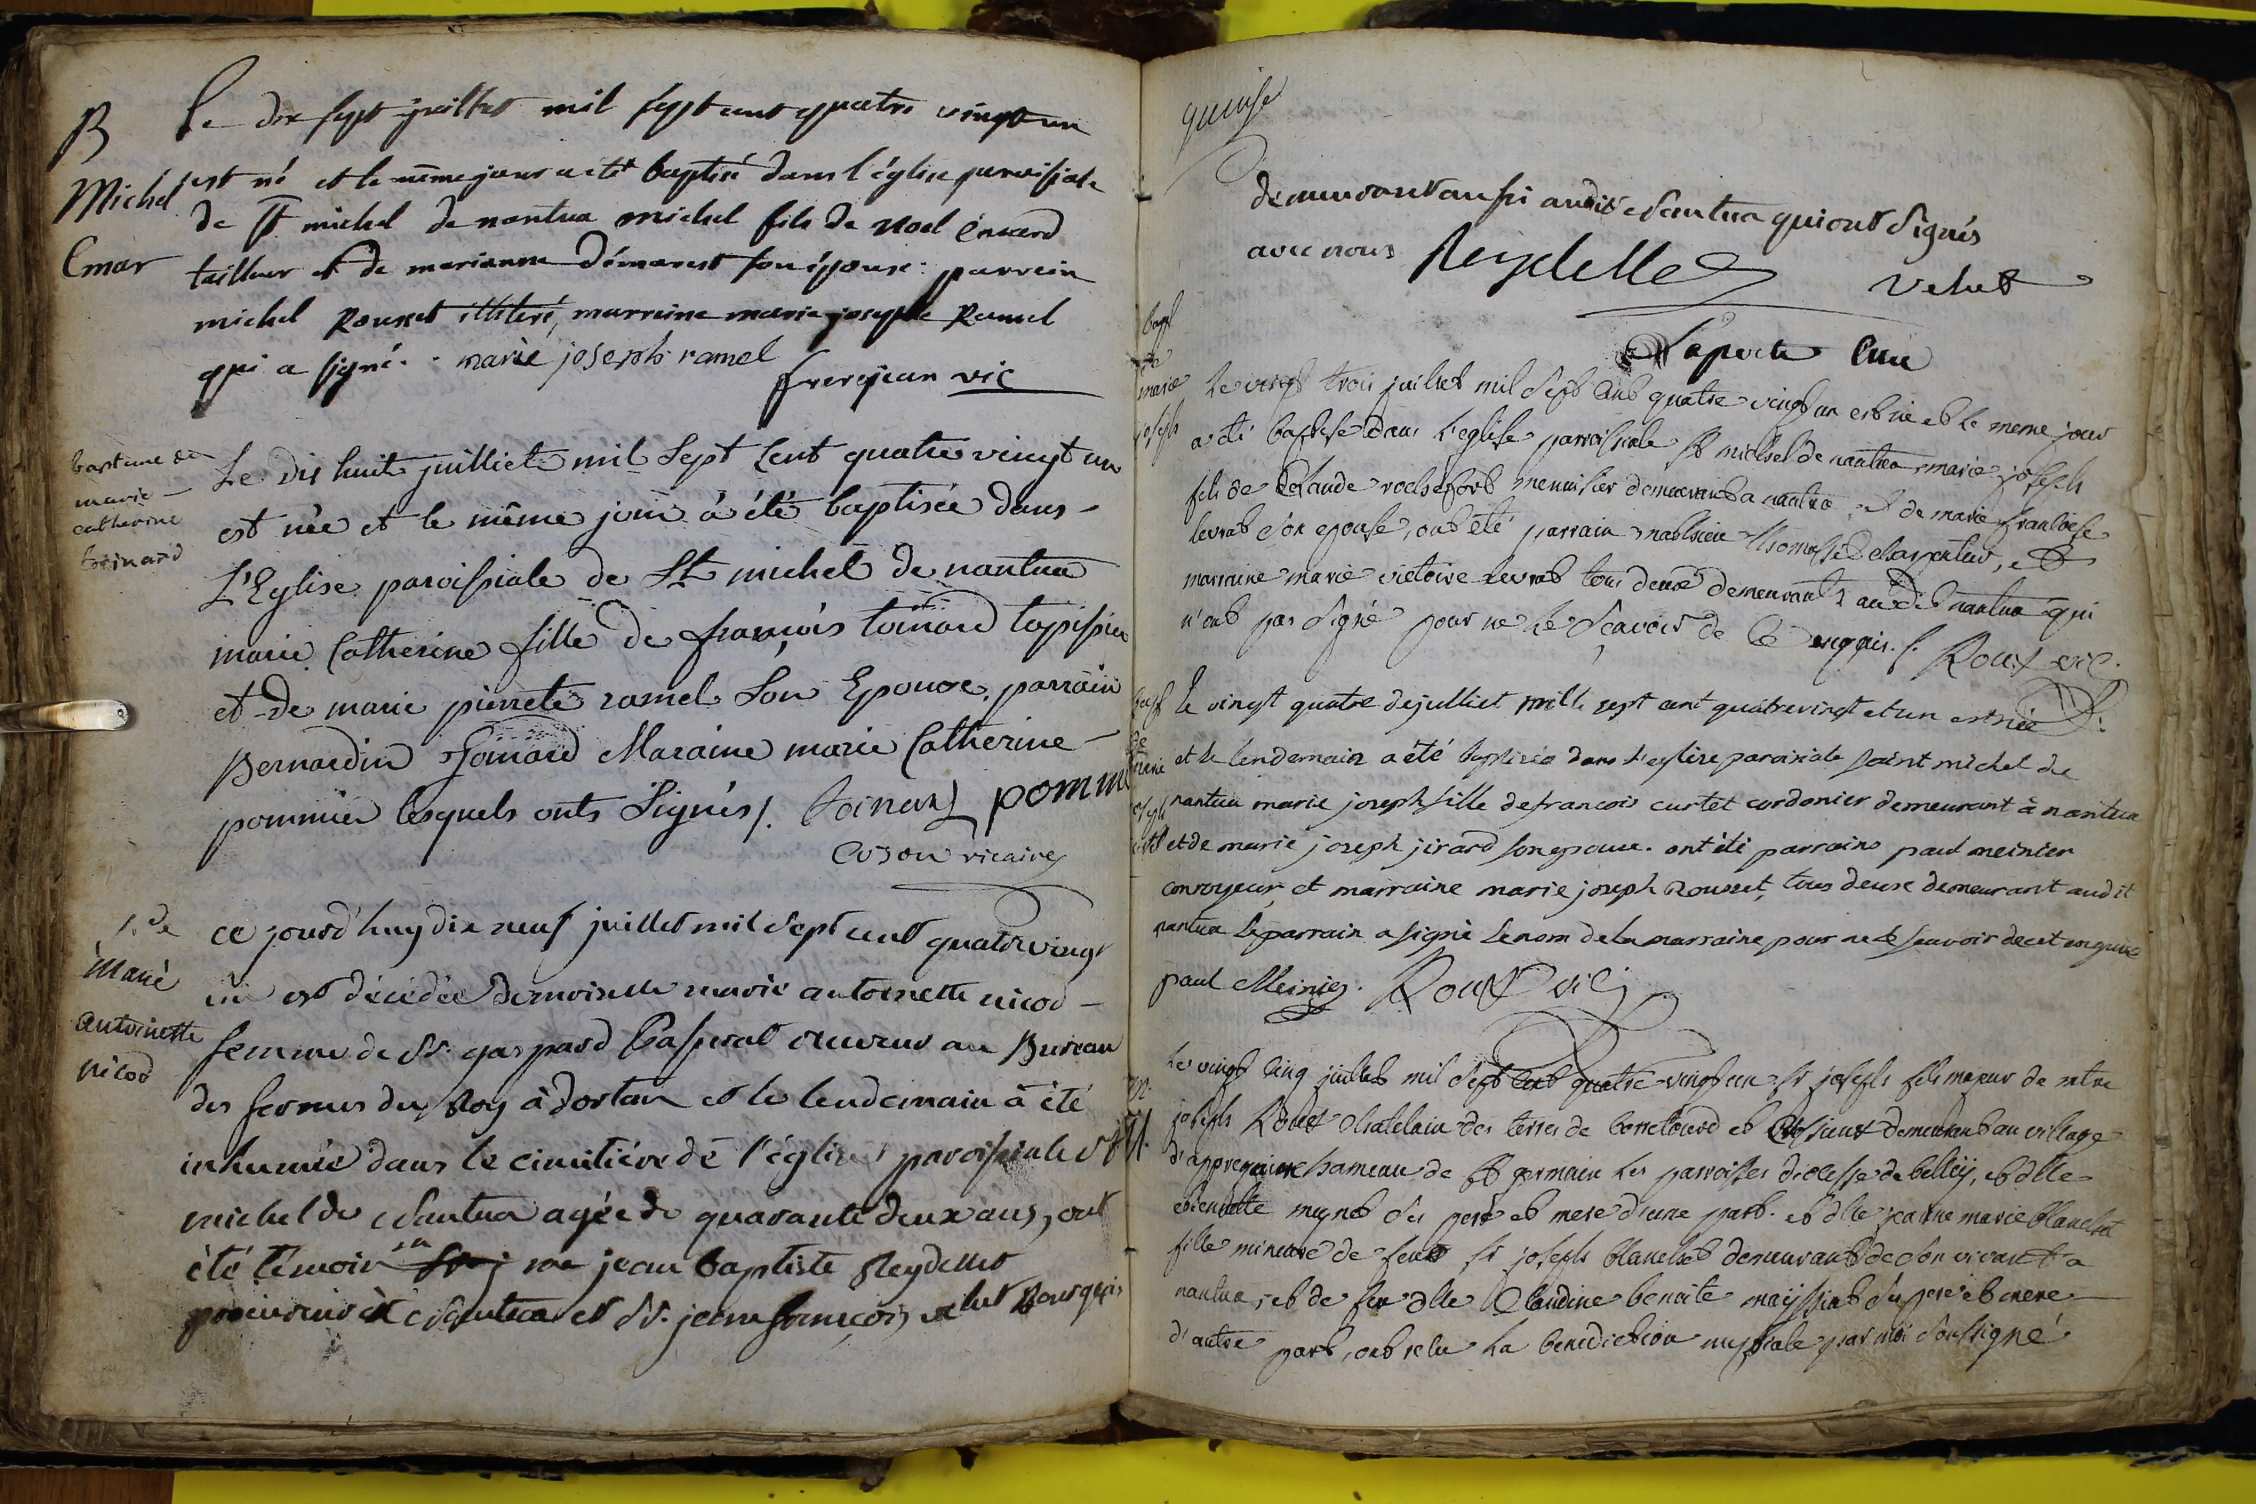 B
Michel
Emar
Le dix sept juillet mil sept cent quatre vingt un
est né et le même jour a été baptisé dans l'église paroissiale
de st michel de nantua michel fils de noel émard
tailleur et de marianne démarest son épouse: parrein
michel Rousset illiteré, marreine marie josephe Ramel
qui a signé. marie joseph ramel
frerejean vic
baptême de
marie
catherine
toinard
Le dis huit juilliet mil sept Cent quatre vingt un
est née et le même jour à été baptisée dans
L'Eglise paroissiale de St michel de nantua
marie Catherine fille de françois toinard tapissier
et de marie pierrete ramel Son Epouse, parrain
Bernardin Toinard Maraine marie Catherine
pommier lesquels onts Signés /. toinard pommie
Cuson vicaire
Marie
antoinette
nicod
ce jourd'huy dix neuf juillet mil sept cent quatre vingt
un est décédée demoiselle marie antoinette nicod
femme de Sr. gaspard receveur au Bureau
des fermes du Roy à dortan et le lendemain à été
inhumée dans le cimitiére de l'église paroissiale st
michel de Nantua agée de quarante deux ans, ont
été témoin me jean baptiste Reydellet
procureur à Nantua et Sr. jean françois velut Bourgeois
quinze
demeurant aussi audit Nantua qui ont Signés
avec nous Reydellet Velut
Laporte Curé
bapt
de
marie
joseph
Le vingt trois juillet mil Sept Cent quatre vingt un est né et le meme jour
a été baptisé dans L'eglise parroissiale St michel de nantua marie joseph
fils de Claude rochefort menuisier demeurant a nantua, et de marie françoise
levrat Son epouse, ont été parrain charpentier, et
marraine marie victoire levrat tous deux demeurants audit nantua qui
n'ont pas Signé pour ne le Sçavoir de Ce enquis. /. Roux vic.
bapt
de
marie
joseph
Le vingt quatre de julliet mille sept cent quatrevingt et un est née
et le lendemain a été baptisée dans l'eglise paroisiale saint michel de
nantua marie joseph fille de francois curtet cordonier demeurant à nantua
et de marie joseph jirard son epouse. ont été parrains paul meinier
convoyeur, et marraine marie joseph Rousset, tous deux demeurant audit
nantua le parrain a signé le nom de la marraine pour ne le savoir de cet enquise
paul Meinier. Roux vic
M.
Le vingt Cinq juillet mil Sept Cent quatre vingt un Sr joseph fils majeur de mtre
joseph Roux Chatelain des terres de et demeurant au village
hameau de St germain les parroisses diocesse de belley, et dlle
Ses pere et mere d'une part. et dlle jeanne marie blanchet
fille mineure de feu Sr joseph blanchet demeurant de Son vivant a
nantua, et de feu dlle Claudine benoite Ses pere et mere
d'autre part, ont reçu La benediction nuptiale par moi Soussigné